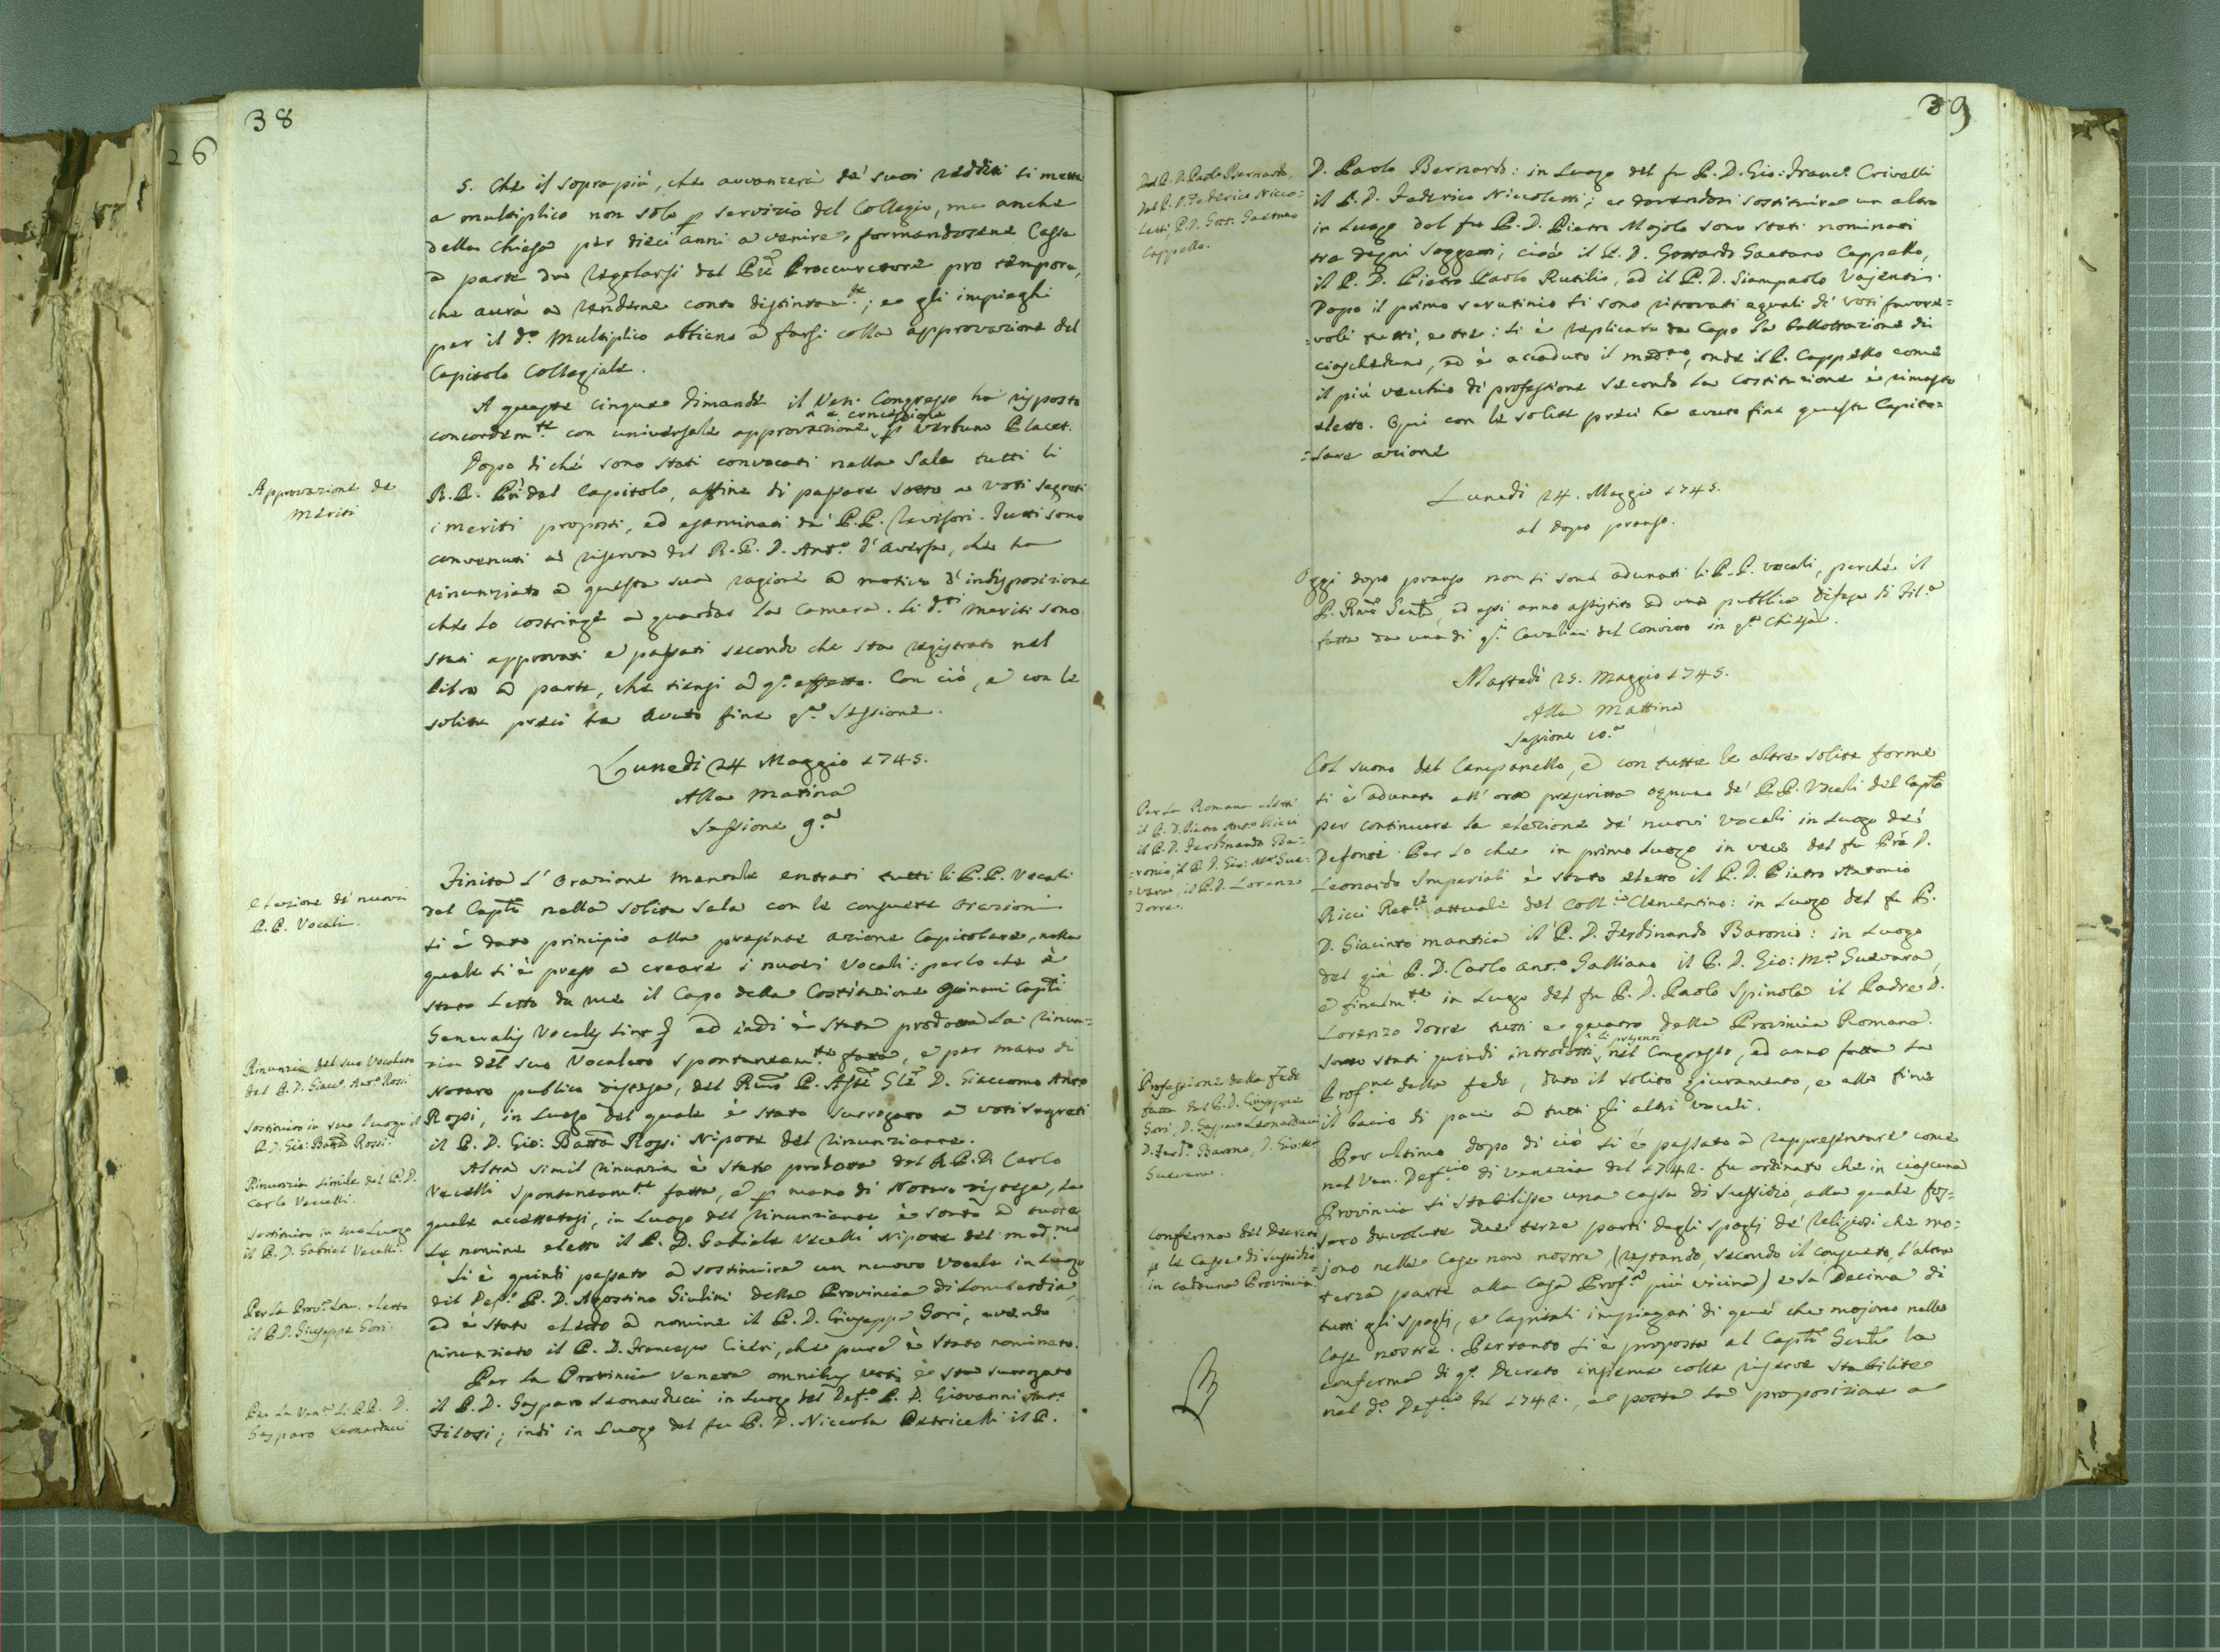 38
26
5. Che il soprapiù, che avvanzerà de' suoi redditi si metta
a multiplico non solo p servizio del Collegio, ma anche
della Chiesa per dieci anni a venire, formandosene Cassa
à parte da regolarsi dal Pre Proccuratore pro tempore,
che avrà a renderne conto distintamte; e gli impieghi
per il do Multiplico abbiano à farsi colla approvazione del
Capitolo Collegiale.
A queste cinque dimande il Ven. Congresso ha risposto
concordemte con universale approvazione, e concessione p verbum Placet.
Approvazione de
meriti
Dopo di chè sono stati convocati nella Sala tutti li
R.R. PP. del Capitolo, affine di passare sotto a voti segreti
i meriti proposti, ed esaminati da' P.P. Revisori. Tutti sono
convenuti a riserva del R. P. D. Anto d'Aversa, che ha
rinunziato à questa sua ragione à motivo d'indisposizione
che lo costringe a guardar la Camera. Li dti meriti sono
stati approvati e passati secondo che sta registrato nel
libro à parte, che tiensi à qo effetto. Con ciò, e con le
solite preci ha avuto fine qa Sessione.
Lunedi 24 Maggio 1745.
Alla Matina
Sessione 9.a
Elezione de' nuovi
P.P. Vocali.
Finita l'Orazione mentale entrati tutti li P.P. Vocali
del Caplo nella solita Sala con le consuete orazioni
si è dato principio alla presente azione Capitolare, nella
quale si è preso a creare i nuovi Vocali: per lo che è
stato letto da me il Capo della Costituzione Quinam Capli
Generalis Vocales sint &, ed indi è stata prodotta la rinun=
Rinunzia del suo Vocalato
del P. D. Giaco Anto Rossi
zia del suo Vocalato spontaneamte fatta, e per mano di
Notaro publico distesa, del Rmo P. Asste Gle D. Giaccomo Anto
Sostituito in suo luogo il
P. D. Gio: Batta Rossi.
Rossi, in luogo del quale è stato surrogato a voti segreti
il P. D. Gio: Batta Rossi Nipote del rinunziante.
Rinunzia simile del P. D.
Carlo Vecelli.
Altra simil rinunzia è stata prodotta del R. P. D. Carlo
Vecelli spontaneamte fatta, e p mano di Notaro distesa, la
Sostituito in suo luogo
il P. D. Gabriel Vecelli.
quale accettatasi, in luogo del rinunziante è sortà à tutte
le nomine eletto il P. D. Gabriele Vecelli Nipote del medmo
Si è quindi passato à sostituire un nuovo Vocale in luogo
Per la Prova Lom. eletto
il P. D. Giuseppe Gori.
del Defo P. D. Agostino Giulini della Provincia di Lombardia,
ed è stato eletto à nomine il P. D. Giuseppe Gori, avendo
rinunziato il P. D. Francesco Ciceri, che pure è stato nominato.
Per la Provincia Veneta omnibus votis è sta surrogato
Per la Vena li PP. D.
Gasparo Leonarducci
il P. D. Gasparo Leonarducci in luogo del Defo P. D. Giovanni Anto
Filosi; indi in luogo del fu P. D. Niccola Petricelli il P.
39
Dal P. D. Paolo Bernardo,
dal P. D. Federico Nicco=
letti, P. D. Gott. Gaetano
Cappello.
D. Paolo Bernardo: in luogo del fu P. D. Gio: Franco Crivelli
il P. D. Federico Niccoletti; e dovendosi sostituire un altro
in luogo del fu P. D. Pietro Majolo sono stati nominati
tre degni soggetti, cioè il P. D. Gottardo Gaetano Cappello,
il P. D. Pietro Paolo Rutilio, ed il P. D. Giampaolo Vajenti.
Dopo il primo scrutinio si sono ritrovati eguali di voti favore=
=voli tutti, e tre: si è replicata da Capo la ballottazione di
ciascheduno, ed è accaduto il medmo, onde il P. Cappello come
il più vecchio di professione secondo la Costituzione è rimasto
eletto. Qui con le solite preci ha avuto fine questa Capito=
=lare azione
Lunedi 24. Maggio 1745.
al dopo pranso.
Oggi dopo pranso non si sono adunati li P.P. vocali, perchè il
P. Rmo Genle, ed essi anno assistito ad una pubblica difesa di Fila
fatta da uno di qi Cavalieri del Convitto in qa Chiesa.
Martedi 25. Maggio 1745.
Alla Mattina
Sessione 10.a
Col suono del Campanello, e con tutte le altre solite forme
si è adunato all'ora prescritta ognuno de' P.P. Vocali del Caplo
Per la Romana eletti
il P. D. Pietro Anto Ricci
il P. D. Ferdinando Ba=
=ronio, il P. D. Gio: Ma Gue=
=vara, il P. D. Lorenzo
Torre.
per continuare la elezione de' nuovi vocali in luogo dei
Defonti. Per lo che in primo luogo in vece del fu Pre D.
Leonardo Imperiali è stato eletto il P. D. Pietro Antonio
Ricci Retre attuale del Collo Clementino: in luogo del fu P.
D. Giacinto Mantica il P. D. Ferdinando Baronio: in luogo
del già P. D. Carlo Anto Galliano il P. D. Gio: Ma Guevara,
e finalmte in luogo del fu P. D. Paolo Spinola il Padre D.
Lorenzo Torre tutti e quattro della Provincia Romana.
Professione della Fede
fatta dal P. D. Giuseppe
Gori, D. Gasparo Leonarducci
D. Ferdo Barono, D. Gio: Ma
Guevara.
Sono stati quindi introdotti li presenti nel Congresso, ed anno fatta la
Profne della fede, dato il solito giuramento, e alla fine
il bacio di pace à tutti gli altri vocali.
Per ultimo dopo di ciò si è passato à rappresentare come
nel Ven. Defrio di Venezia del 1742. fu ordinato che in ciascuna
Conferma del Decreto
p le Casse di Sussidio
in cadauna Provincia
Provincia si stabilisse una cassa di sussidio, alla quale fos=
sero devolute due terze parti degli spoglj de' Religiosi che mo=
jono nelle Case non nostre, (restando, secondo il consueto, l'altra
terza parte alla Casa Profsa più vicina) e la Decima di
tutti gli spoglj, e Capitali impiegati di quei che mojono nelle
Case nostre. Pertanto si è proposta al Caplo Genle la
conferma di qo Decreto insieme colle riserve stabilite
nel do Defrio del 1742., e posta la proposizione a